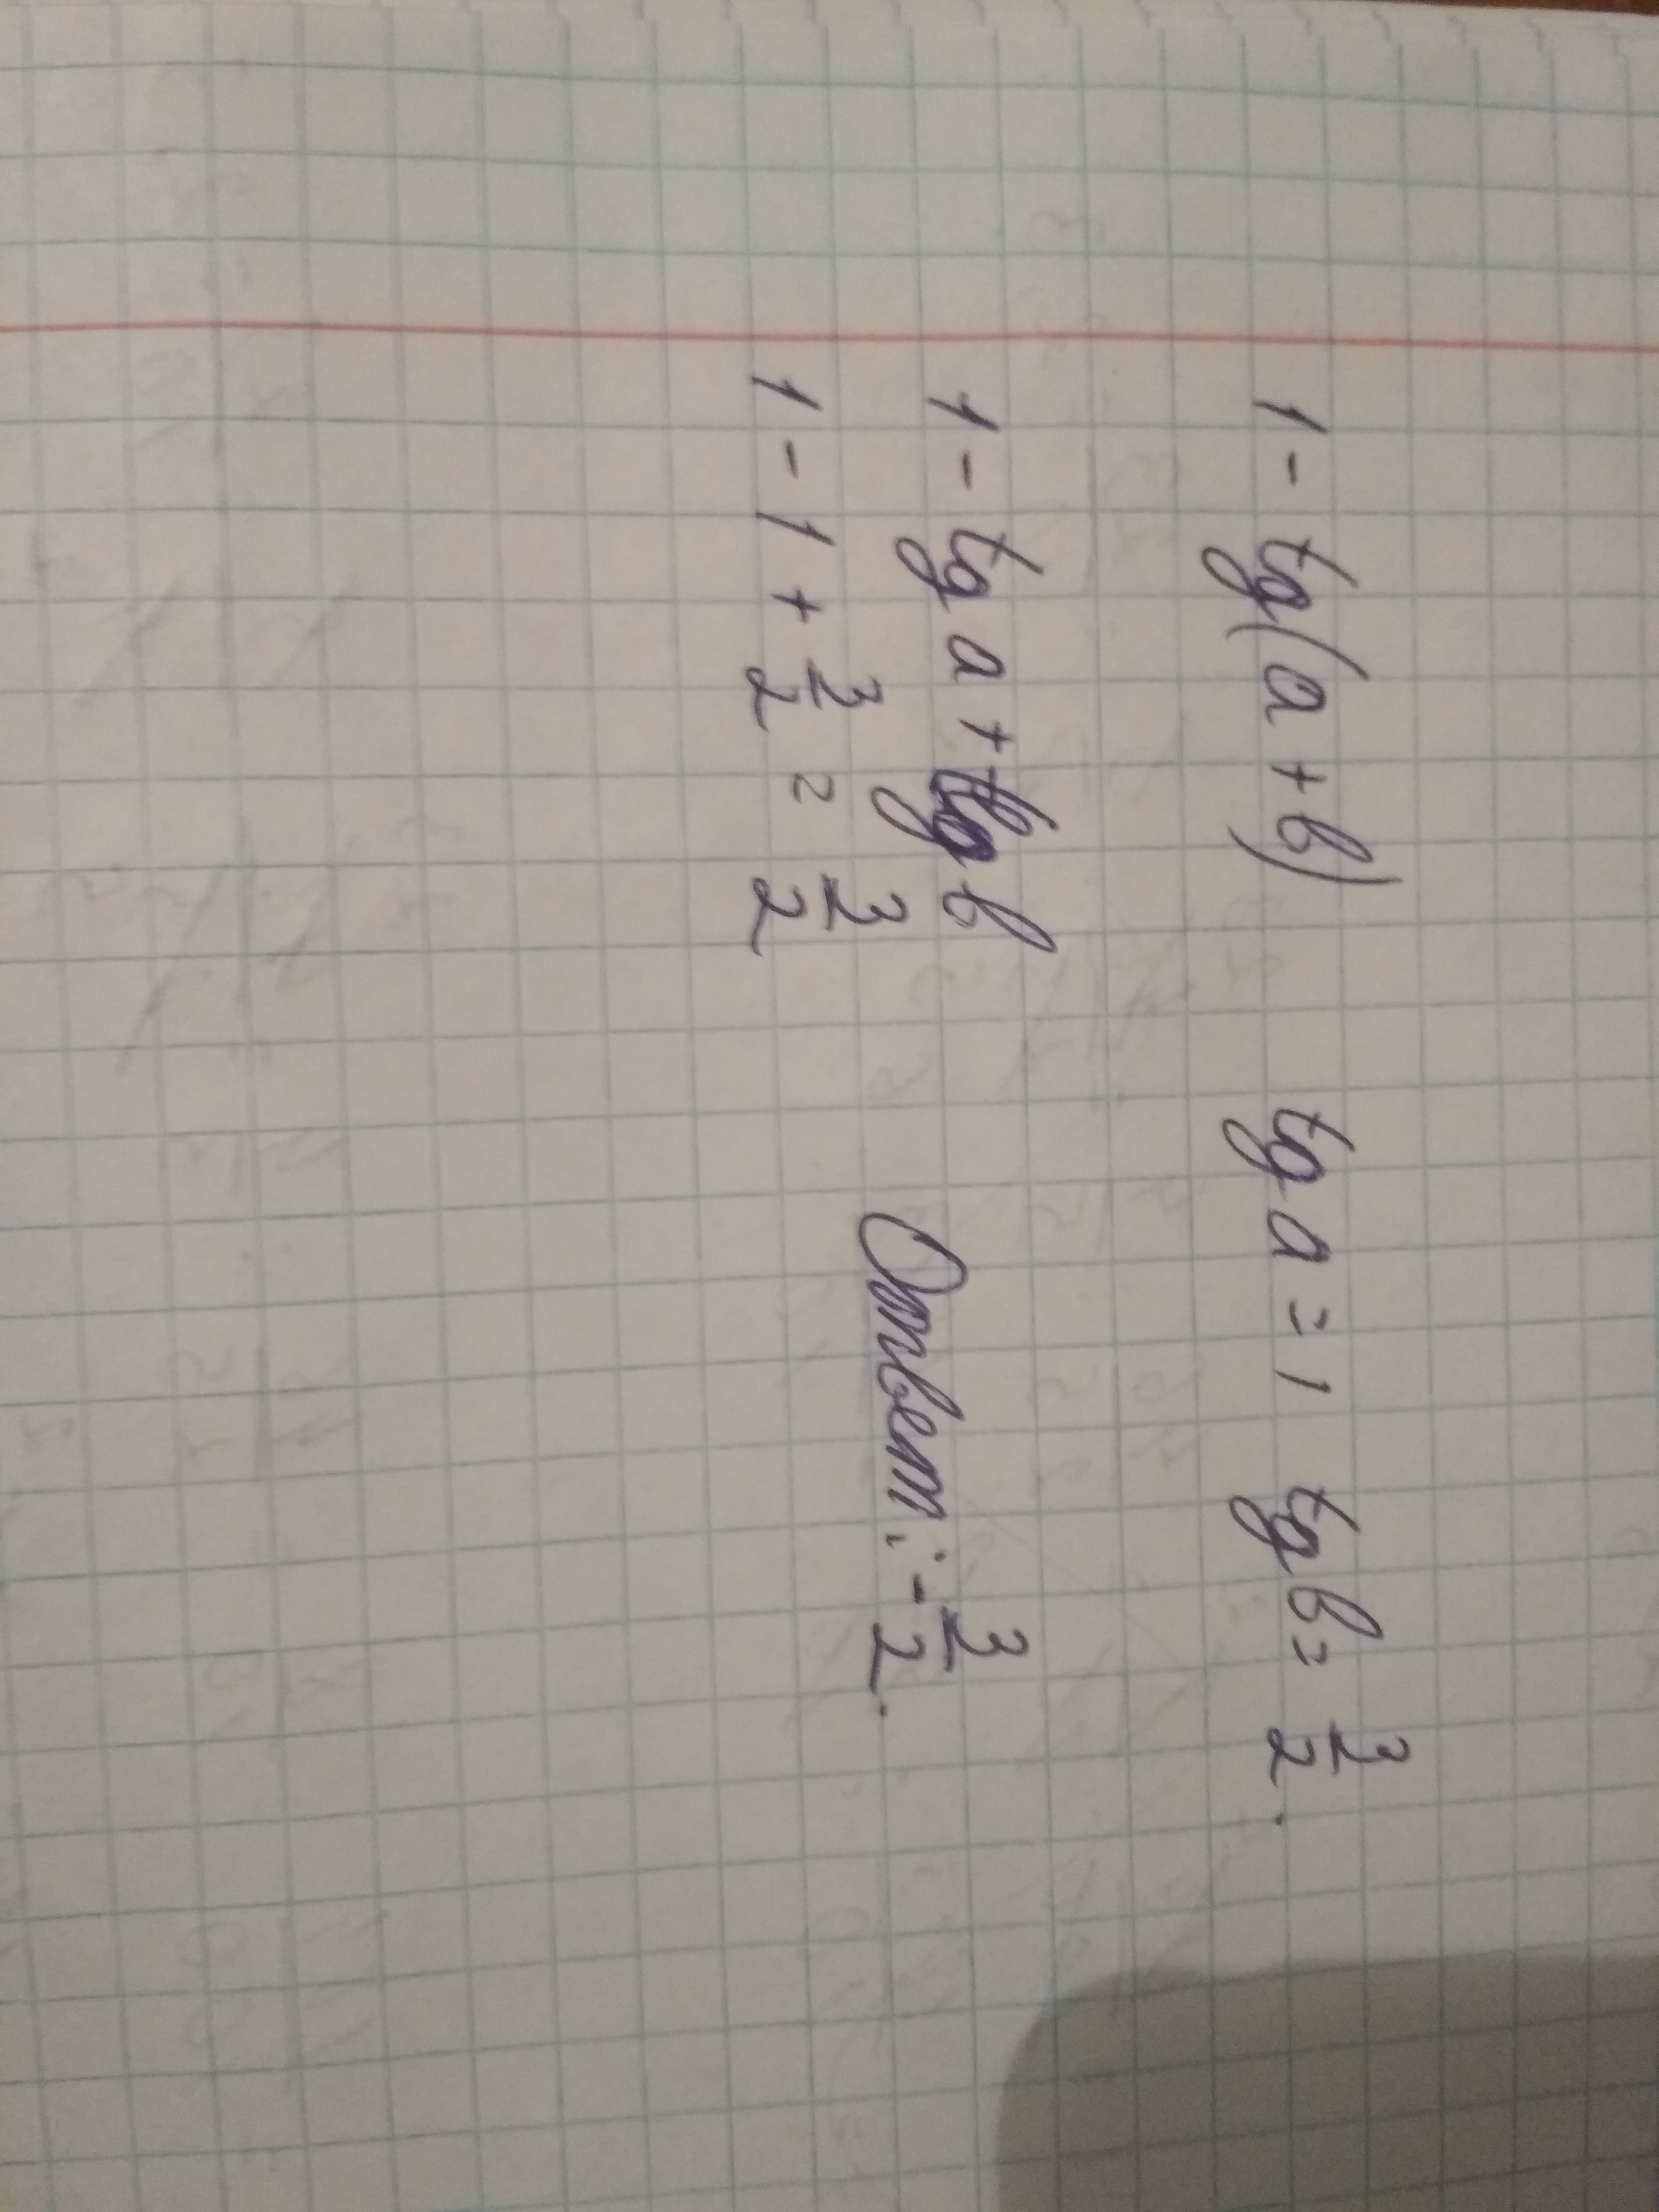 1 - tg(a + b) tg a = 1 tg b = 3/2.
1 - tg a + tg b
1 - 1 + 3/2 = 3/2 Ответ: - 3/2.